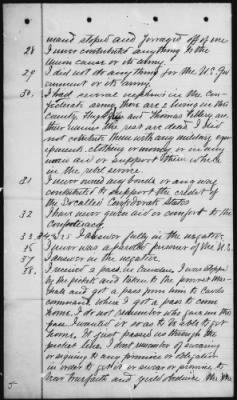 mand stoped and foraged off of me
28 I never contributed anything to the
Union cause or its army.
29 I did not do any thing for the U.S. Gov
ernment or its army.
30. I had several nephews in the Con-
federate army there are 2 living in this
county, and Thomas
their names the rest are dead I did
not contribute them with any military equip-
ments clothing or money or in any
way aid or support them while
in the rebel service
31 I never owned any bonds or any way
contributed to support the credit of
the So called Confederate States
32 I have never given aid or comfort to the
Confederacy
33. 34 & 35 I answer fully in the negative
36 I never was a paroled prisoner of the U.S.
37 I answer in the negative.
38. I received a pass in Camden, I was stopped
by the pickets and taken to the provost Mar-
shals and got a pass from him to
command, when I got a pass to come
home. I do not remember who gave me this
pass I wanted it so as to be able to get
home. It just passed me through the
picket line. I dont remember of swearing
or signing to any promise or obligation
in order to get it or swear or promise to
bear true faith and yield obedience the the
5